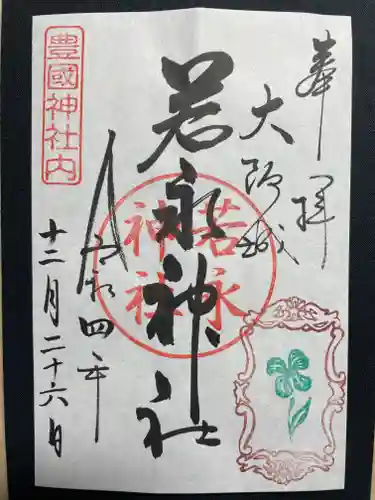 奉拝
大野城
若永神社
若永神社
令和四年
十二月二十六日
豊國神社内